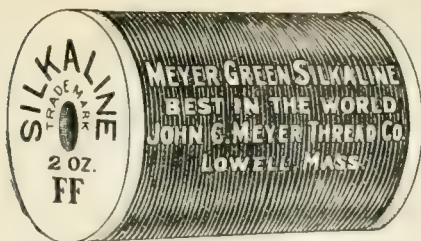 SILKALINE
TRADEMARK
2 OZ.
FF
MEYER GREEN SILKALINE
BEST IN THE WORLD
JOHN C. MEYER THREAD CO.
LOWELL, MASS.